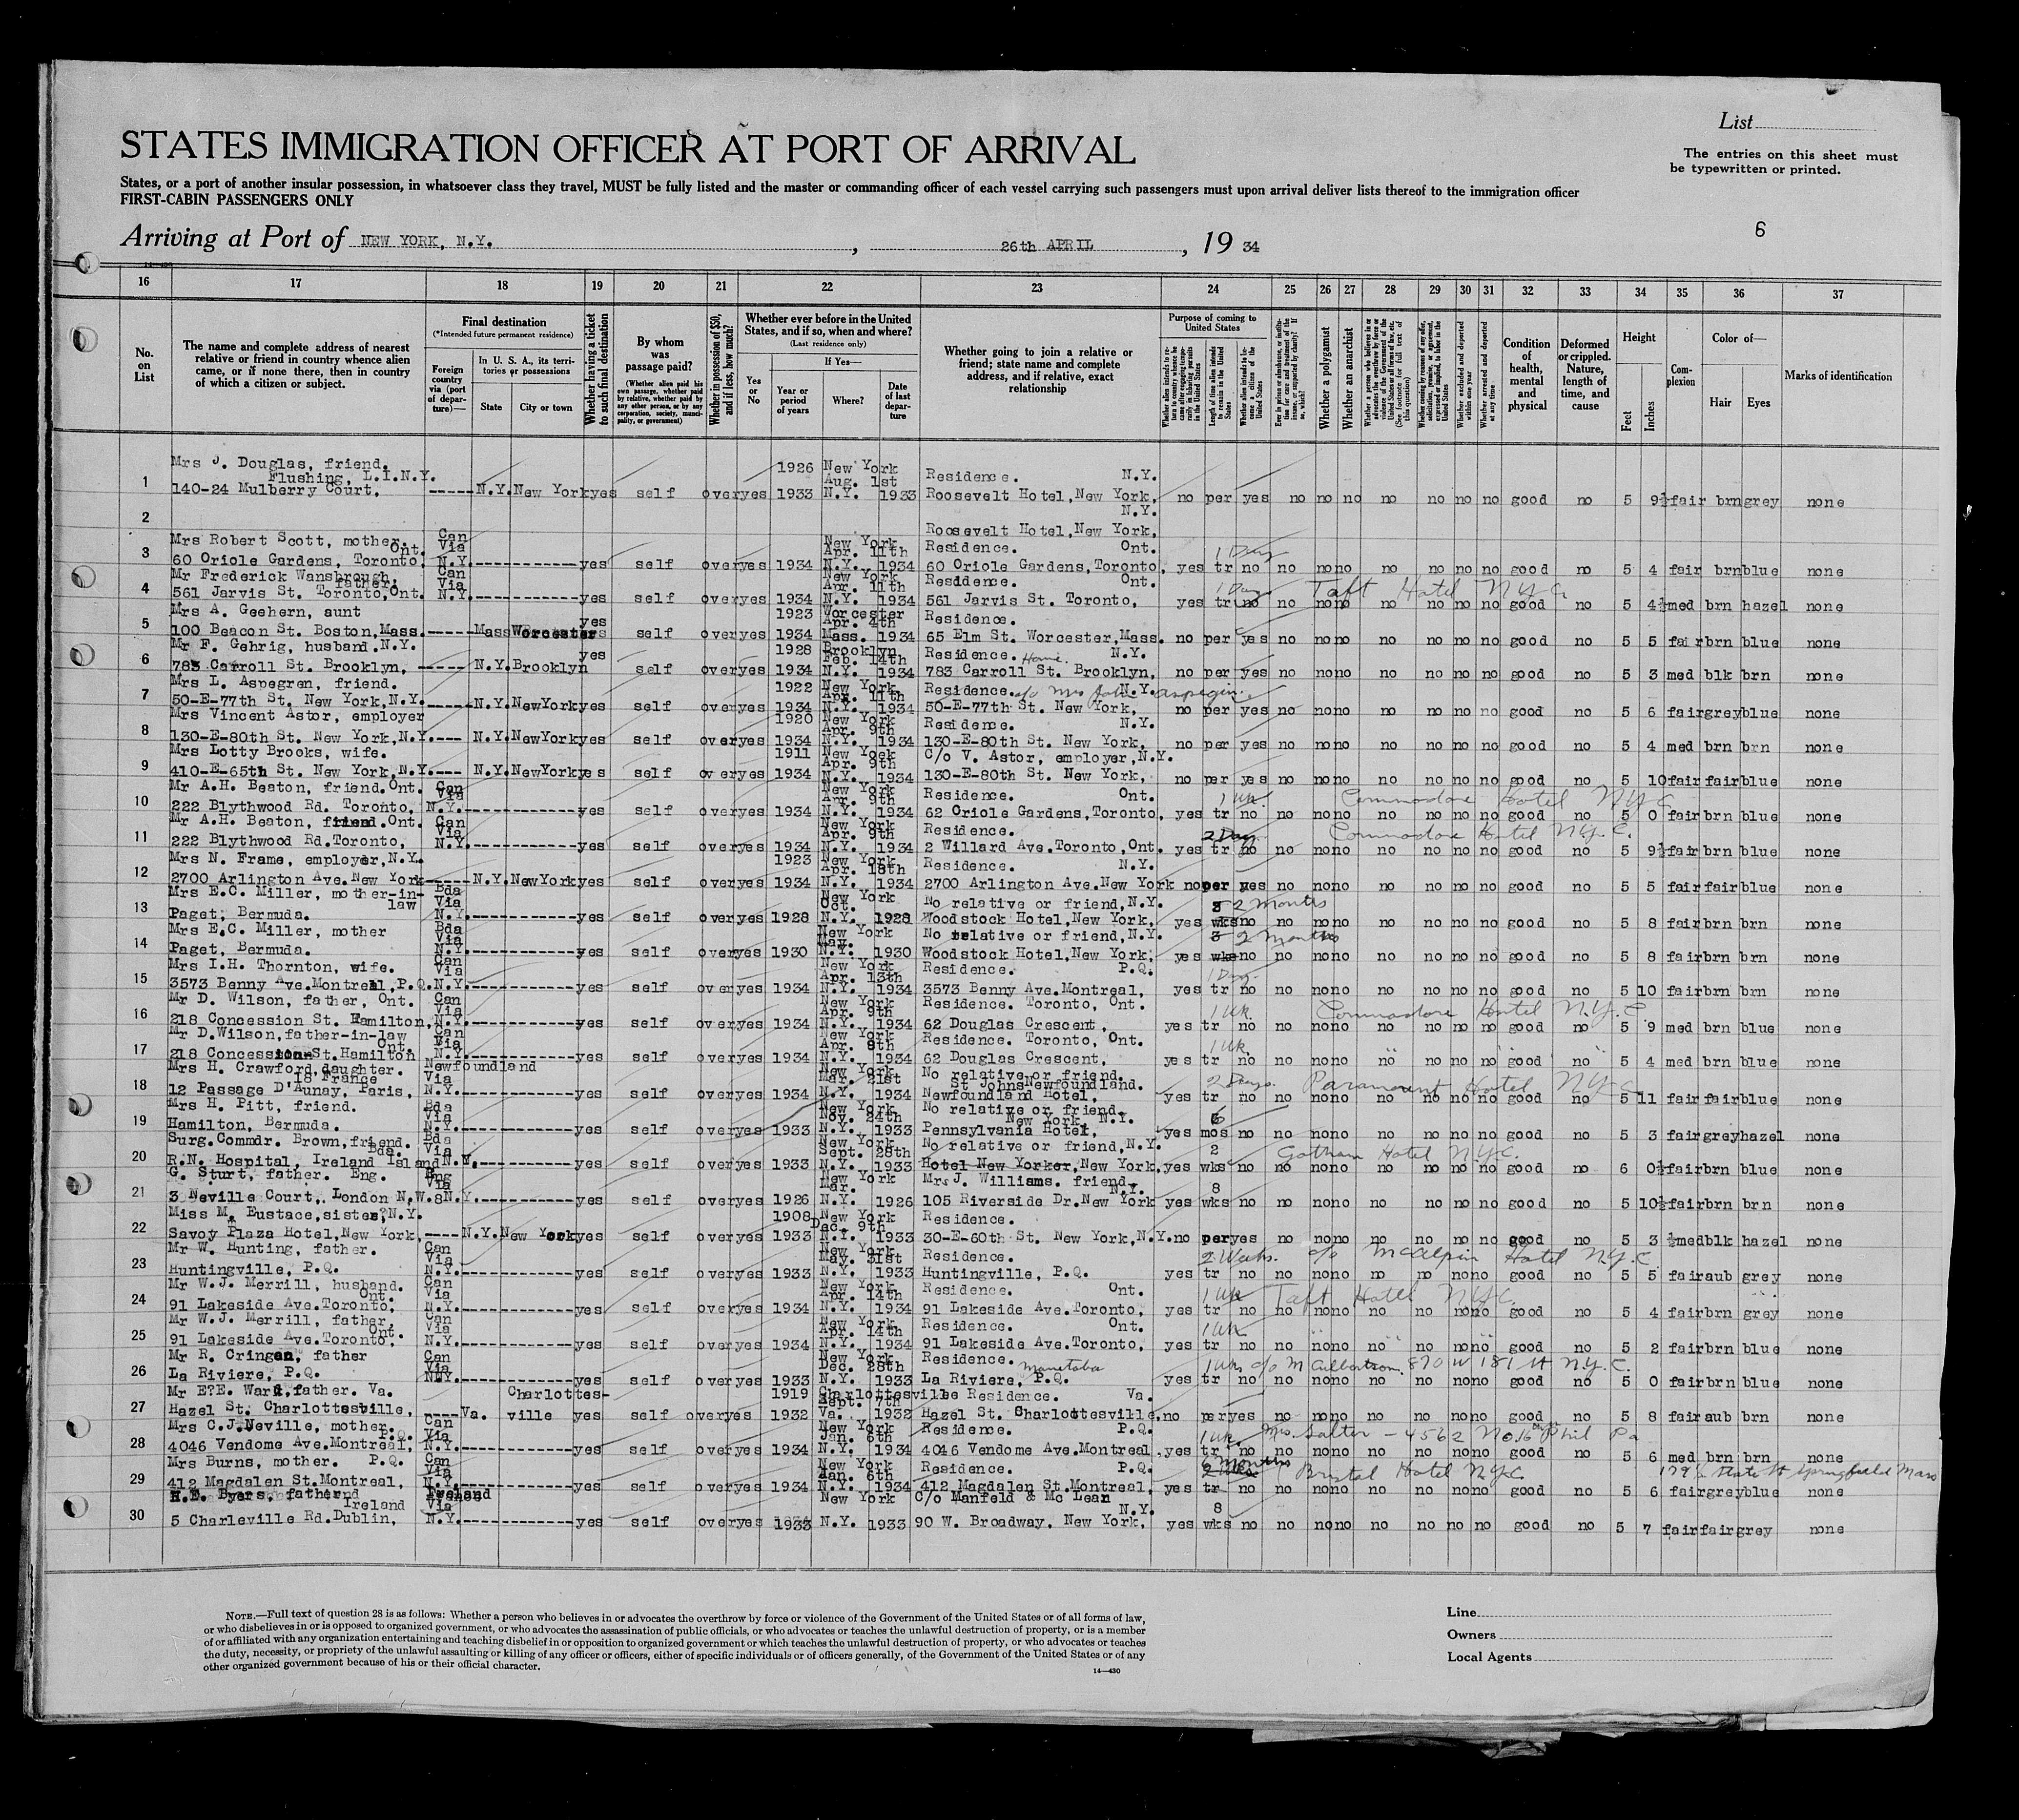 List
STATES IMMIGRATION OFFICER AT PORT OF ARRIVAL
The entries on this sheet must
be typewritten or printed.
States, or a port of another insular possession, in whatsoever class they travel, MUST be fully listed and the master or commanding officer of each vessel carrying such passengers must upon arrival deliver lists thereof to the immigration officer
FIRST-CABIN PASSENGERS ONLY
6
Arriving at Port of NEW YORK, N.Y. , 26th APRIL , 19 34
16 17 18 19 20 21 22 23 24 25 26 27 28 29 30 31 32 33 34 35 36 37
No. on List
The name and complete address of nearest relative or friend in country whence alien came, or if none there, then in country of which a citizen or subject.
Final destination
(*Intended future permanent residence)
Foreign country via (port of departure)—
In U. S. A., its territories or possessions
State City or town
Whether having a ticket to such final destination
By whom was passage paid?
(Whether alien paid his own passage, whether paid by relative, whether paid by any other person, or by any corporation, society, municipality, or government)
Whether in possession of $50, and if less, how much?
Whether ever before in the United States, and if so, when and where?
(Last residence only)
Yes or No
If Yes—
Year or period of years Where? Date of last departure
Whether going to join a relative or friend; state name and complete address, and if relative, exact relationship
Purpose of coming to United States
Whether a polygamist
Whether an anarchist
Condition of health, mental and physical
Deformed or crippled. Nature, length of time, and cause
Height
Feet Inches
Complexion
Color of—
Hair Eyes
Marks of identification
1 Mrs J. Douglas, friend. Flushing, L.I.N.Y. 140-24 Mulberry Court, ----- N.Y. New York yes self over yes 1926 1933 New York N.Y. Aug. 1st 1933 Residence. N.Y. Roosevelt Hotel, New York, no per yes no no no no no no no good no 5 9½ fair brn grey none
2 N.Y. Roosevelt Hotel, New York,
3 Mrs Robert Scott, mother. Ont. 60 Oriole Gardens, Toronto, Can Via N.Y. yes self over yes 1934 New York N.Y. Apr. 11th 1934 Residence. Ont. 60 Oriole Gardens, Toronto, 1 Day yes tr no no no no no no no no good no 5 4 fair brn blue none
4 Mr Frederick Wansbrough, father, 561 Jarvis St. Toronto, Ont. Can Via N.Y. yes self over yes 1934 New York N.Y. Apr. 11th 1934 Residence. Ont. 561 Jarvis St. Toronto, 1 Day Taft Hotel NYC yes tr no no no no no no no no good no 5 4½ med brn hazel none
5 Mrs A. Geehern, aunt 100 Beacon St. Boston, Mass. ----- Mass Worcester yes self over yes 1923 1934 Worcester Mass. Apr. 4th 1934 Residence. 65 Elm St. Worcester, Mass. no per yes no no no no no no no good no 5 5 fair brn blue none
6 Mr F. Gehrig, husband. N.Y. 783 Carroll St. Brooklyn, ----- N.Y. Brooklyn yes self over yes 1928 1934 Brooklyn N.Y. Feb. 14th 1934 Residence. Home. N.Y. 783 Carroll St. Brooklyn, no per yes no no no no no no no good no 5 3 med blk brn none
7 Mrs L. Aspegren, friend. 50-E-77th St. New York, N.Y. ----- N.Y. NewYork yes self over yes 1922 1934 New York N.Y. Apr. 11th 1934 Residence. c/o Mrs N.Y. 50-E-77th St. New York, no per yes no no no no no no no good no 5 6 fair grey blue none
8 Mrs Vincent Astor, employer 130-E-80th St. New York, N.Y. ---- N.Y. NewYork yes self over yes 1920 1934 New York N.Y. Apr. 9th 1934 Residence. N.Y. 130-E-80th St. New York, no per yes no no no no no no no good no 5 4 med brn brn none
9 Mrs Lotty Brooks, wife. 410-E-65th St. New York, N.Y. ---- N.Y. NewYork yes self over yes 1911 1934 New York N.Y. Apr. 9th 1934 C/o V. Astor, employer, N.Y. 130-E-80th St. New York, no per yes no no no no no no no good no 5 10 fair fair blue none
10 Mr A.H. Beaton, friend. Ont. 222 Blythwood Rd. Toronto, Can Via N.Y. yes self over yes 1934 New York N.Y. Apr. 9th 1934 Residence. Ont. 62 Oriole Gardens, Toronto, 1 Wk. Commodore Hotel NYC yes tr no no no no no no no no good no 5 0 fair brn blue none
11 Mr A.H. Beaton, friend. Ont. 222 Blythwood Rd. Toronto, Can Via N.Y. yes self over yes 1934 New York N.Y. Apr. 9th 1934 Residence. 2 Willard Ave. Toronto, Ont. 2 Day Commodore Hotel N.Y.C. yes tr no no no no no no no no good no 5 9½ fair brn blue none
12 Mrs N. Frame, employer, N.Y. 2700 Arlington Ave. New York ----- N.Y. NewYork yes self over yes 1923 1934 New York N.Y. Apr. 18th 1934 Residence. N.Y. 2700 Arlington Ave. New York no per yes no no no no no no no good no 5 5 fair fair blue none
13 Mrs E.C. Miller, mother-in-law Paget, Bermuda. Bda Via N.Y. yes self over yes 1928 New York N.Y. Oct. 1928 No relative or friend, N.Y. Woodstock Hotel, New York, 2 Months yes wks no no no no no no no no good no 5 8 fair brn brn none
14 Mrs E.C. Miller, mother Paget, Bermuda. Bda Via N.Y. yes self over yes 1930 New York N.Y. May. 1930 No relative or friend, N.Y. Woodstock Hotel, New York, 3 2 months yes wks no no no no no no no no good no 5 8 fair brn brn none
15 Mrs I.H. Thornton, wife. 3573 Benny Ave. Montreal, P.Q. Can Via N.Y. yes self over yes 1934 New York N.Y. Apr. 13th 1934 Residence. P.Q. 3573 Benny Ave. Montreal, 1 Day yes tr no no no no no no no no good no 5 10 fair brn brn none
16 Mr D. Wilson, father, Ont. 218 Concession St. Hamilton, Can Via N.Y. yes self over yes 1934 New York N.Y. Apr. 9th 1934 Residence. Toronto, Ont. 62 Douglas Crescent, 1 Wk. Commodore Hotel N.Y.C yes tr no no no no no no no no good no 5 9 med brn blue none
17 Mr D. Wilson, father-in-law Ont. 218 Concession St. Hamilton Can Via N.Y. yes self over yes 1934 New York N.Y. Apr. 8th 1934 Residence. Toronto, Ont. 62 Douglas Crescent, 1 Wk. yes tr no no no no no no no no good no 5 4 med brn blue none
18 Mrs H. Crawford, daughter. 18 France 12 Passage D'Aunay, Paris, Newfoundland Via N.Y. yes self over yes 1934 New York N.Y. Mar. 21st 1934 No relative or friend. St Johns Newfoundland. Newfoundland Hotel, 2 Days. Paramount Hotel NYC yes tr no no no no no no no no good no 5 11 fair fair blue none
19 Mrs H. Pitt, friend. Hamilton, Bermuda. Bda Via N.Y. yes self over yes 1933 New York N.Y. Nov. 24th 1933 No relative or friend. New York, N.Y. Pennsylvania Hotel, 6 yes mos no no no no no no no no good no 5 3 fair grey hazel none
20 Surg. Commdr. Brown, friend. Bda. R.N. Hospital, Ireland Island Bda Via N.Y. yes self over yes 1933 New York N.Y. Sept. 28th 1933 No relative or friend, N.Y. Hotel New Yorker, New York, 2 Gotham Hotel N.Y.C. yes wks no no no no no no no no good no 6 0½ fair brn blue none
21 G. Sturt, father. Eng. 3 Neville Court, London N.W.8 Eng Via N.Y. yes self over yes 1926 New York N.Y. Mar. 1926 Mrs J. Williams. friend, N.Y. 105 Riverside Dr. New York 8 yes wks no no no no no no no no good no 5 10½ fair brn brn none
22 Miss M. Eustace, sister, N.Y. Savoy Plaza Hotel, New York, ---- N.Y. New York yes self over yes 1908 1933 New York N.Y. Dec. 9th 1933 Residence. 30-E-60th St. New York, N.Y. no per yes no no no no no no no good no 5 3½ med blk hazel none
23 Mr W. Hunting, father. Huntingville, P.Q. Can Via N.Y. yes self over yes 1933 New York N.Y. May. 31st 1933 Residence. Huntingville, P.Q. 2 Weeks. c/o McAlpin Hotel N.Y.C yes tr no no no no no no no no good no 5 5 fair aub grey none
24 Mr W.J. Merrill, husband. Ont. 91 Lakeside Ave. Toronto, Can Via N.Y. yes self over yes 1934 New York N.Y. Apr. 14th 1934 Residence. Ont. 91 Lakeside Ave. Toronto, 1 Wk Taft Hotel NYC. yes tr no no no no no no no no good no 5 4 fair brn grey none
25 Mr W.J. Merrill, father, Ont. 91 Lakeside Ave. Toronto, Can Via N.Y. yes self over yes 1934 New York N.Y. Apr. 14th 1934 Residence. Ont. 91 Lakeside Ave. Toronto, 1 Wk yes tr no no no no no no no no good no 5 2 fair brn blue none
26 Mr R. Cringan, father La Riviere, P.Q. Can Via N.Y. yes self over yes 1933 New York N.Y. Dec. 28th 1933 Residence. Manetoba La Riviere, P.Q. 1 Wk c/o M Culbertson 870 W 181 St N.Y.C. yes tr no no no no no no no no good no 5 0 fair brn blue none
27 Mr E?E. Ward, father. Va. Hazel St. Charlottesville, ---- Va. Charlottes-ville yes self over yes 1919 1932 Charlottesville Va. Sept. 7th 1932 Residence. Va. Hazel St. Charlottesville, no per yes no no no no no no no good no 5 8 fair aub brn none
28 Mrs C.J. Neville, mother. P.Q. 4046 Vendome Ave. Montreal, Can Via N.Y. yes self over yes 1934 New York N.Y. Jan. 6th 1934 Residence. P.Q. 4046 Vendome Ave. Montreal, 1 Wk. Mrs. Salter - 4562 No. 16th Phil Pa yes tr no no no no no no no no good no 5 6 med brn brn none
29 Mrs Burns, mother. P.Q. 412 Magdalen St. Montreal, Can Via N.Y. yes self over yes 1934 New York N.Y. Jan. 6th 1934 Residence. P.Q. 412 Magdalen St. Montreal, 6 Months Bristol Hotel NYC State St Springfield Mass yes tr no no no no no no no no good no 5 6 fair grey blue none
30 H.E. Byers, father Ireland 5 Charleville Rd. Dublin, Ireland Via N.Y. yes self over yes 1933 New York N.Y. 1933 C/o Manfeld & Mc Lean N.Y. 90 W. Broadway, New York, 8 yes wks no no no no no no no no good no 5 7 fair fair grey none
NOTE.—Full text of question 28 is as follows: Whether a person who believes in or advocates the overthrow by force or violence of the Government of the United States or of all forms of law,
or who disbelieves in or is opposed to organized government, or who advocates the assassination of public officials, or who advocates or teaches the unlawful destruction of property, or is a member
of or affiliated with any organization entertaining and teaching disbelief in or opposition to organized government or which teaches the unlawful destruction of property, or who advocates or teaches
the duty, necessity, or propriety of the unlawful assaulting or killing of any officer or officers, either of specific individuals or of officers generally, of the Government of the United States or of any
other organized government because of his or their official character.
14—430
Line
Owners
Local Agents